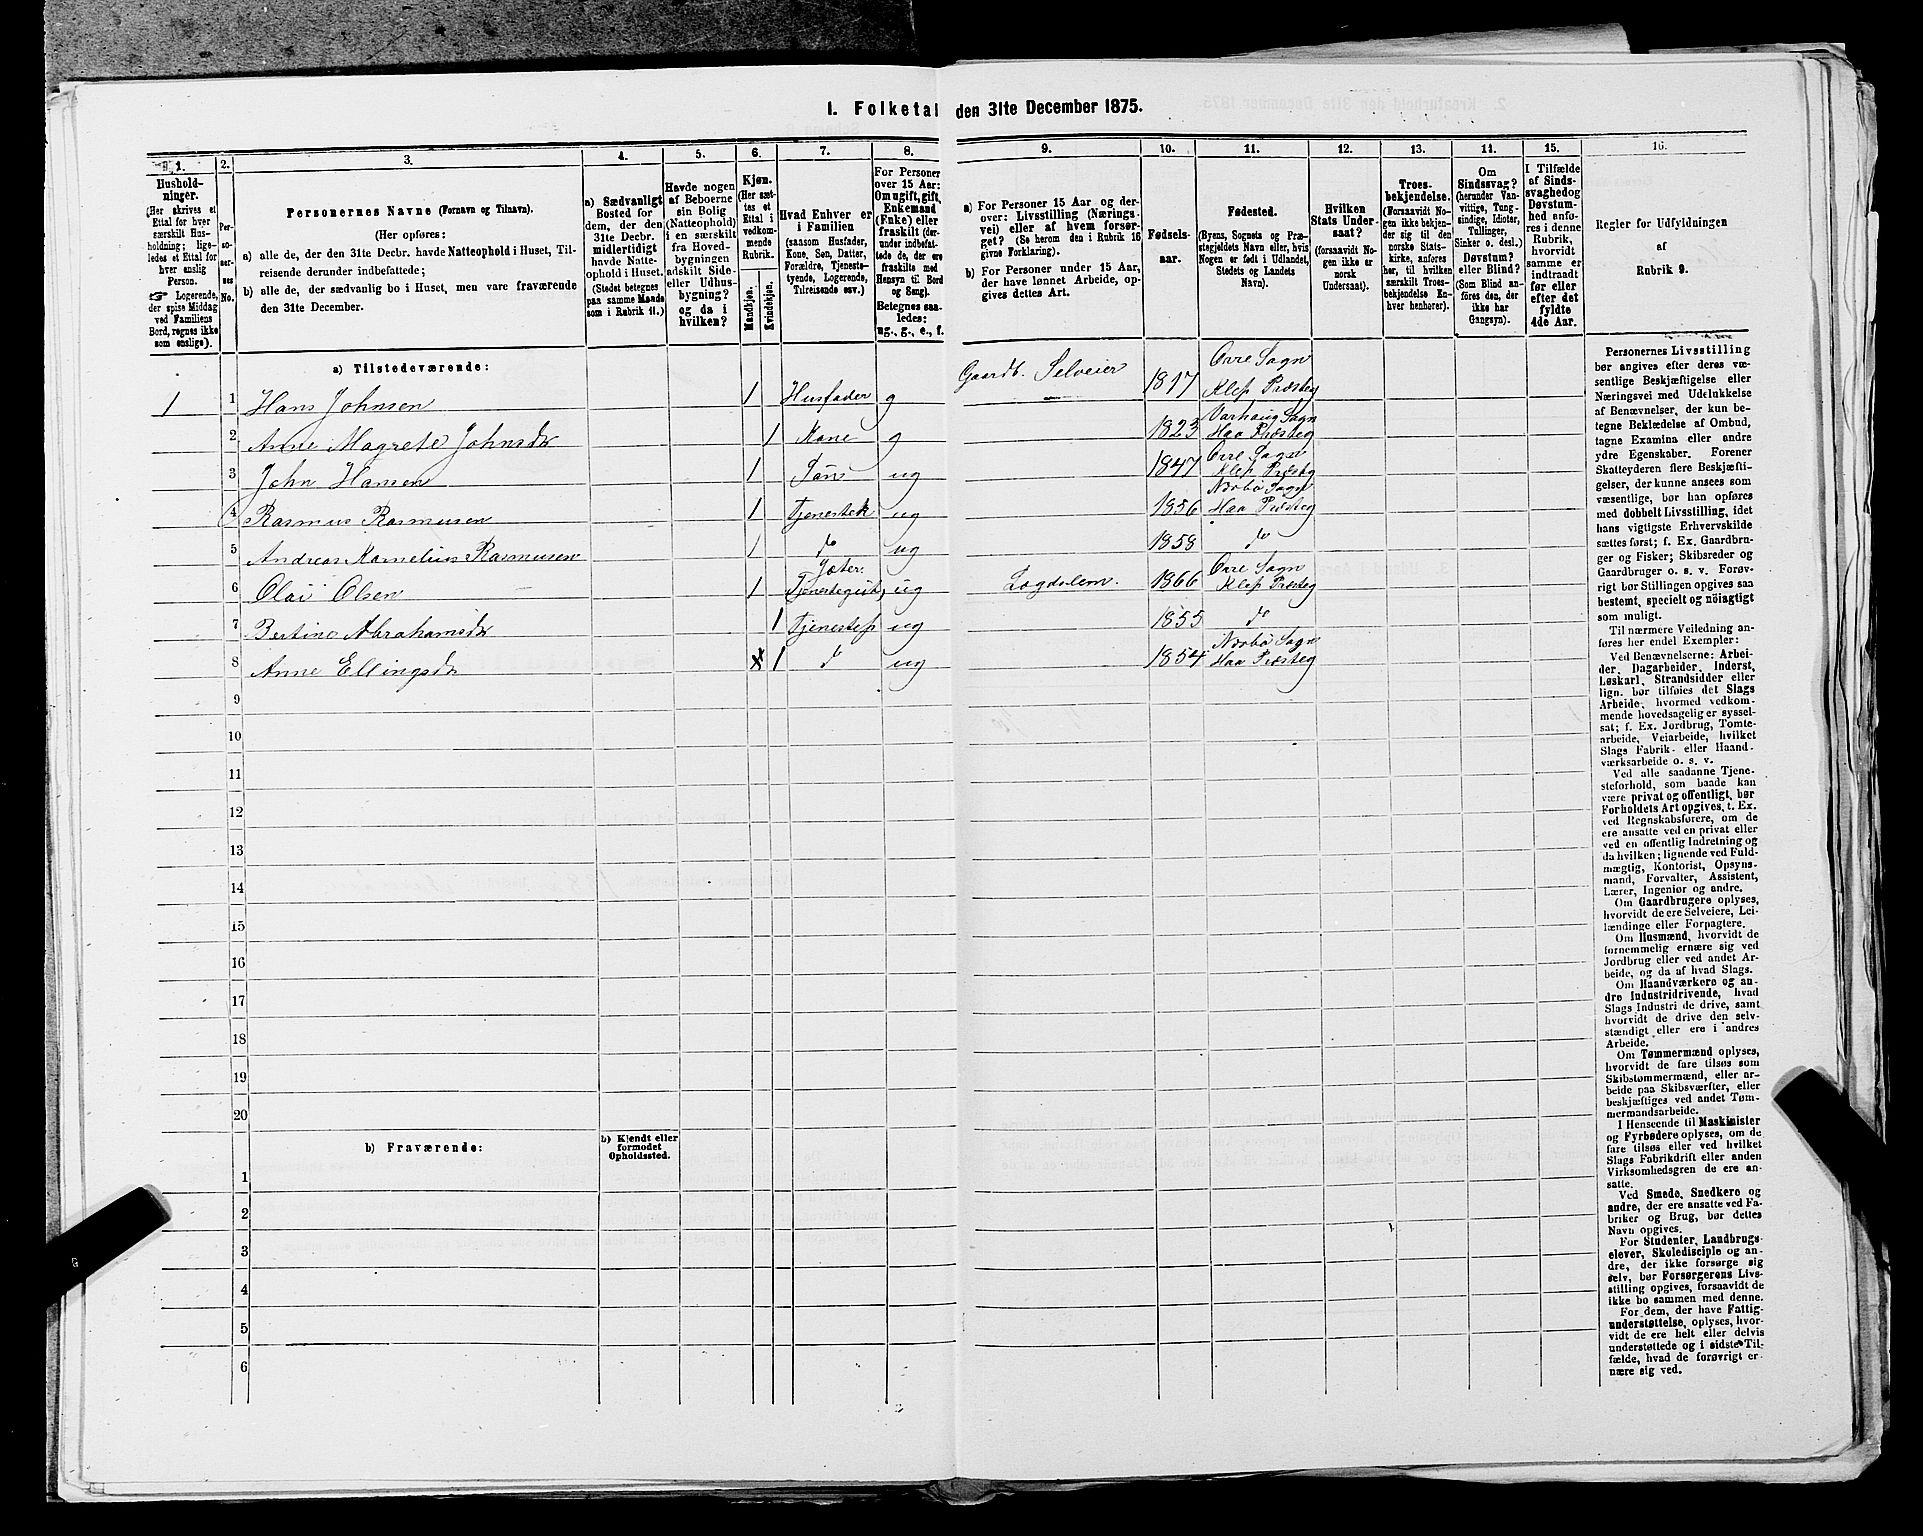 1. Folketal den 31te December 1875.
1. 2. 3. 4. 5. 6. 7. 8. 9. 10. 11. 12. 13. 14. 15. 16.
Hushold-
ninger.
(Her skrives et
Ettal for hver
særskilt Hus-
holdning; lige-
ledes et Ettal for
hver enslig
Person.
☞ Logerende,
der spise Middag
ved Familiens
Bord, regnes ikke
som enslige).
Per-
so-
ner-
nes
No.
Personernes Navne (Fornavn og Tilnavn).
(Her opføres:
a) alle de, der den 31te Decbr. havde Natteophold i Huset, Til-
reisende derunder indbefattede;
b) alle de, der sædvanlig bo i Huset, men vare fraværende
den 31te December.
a) Sædvanligt
Bosted for
dem, der den
31te Decbr.
midlertidigt
havde Natte-
ophold i Huset.
(Stedet betegnes
paa samme Maade
som i Rubrik 11.)
Havde nogen
af Beboerne
sin Bolig
(Natteophold)
i en særskilt
fra Hoved-
bygningen
adskilt Side-
eller Udhus-
bygning?
og da i
hvilken?
Kjøn.
(Her sæt-
tes et
Ettal i
vedkom-
mende
Rubrik.
Mandkjøn.
Kvindekjøn.
Hvad Enhver er
i Familien
(saasom Husfader,
Kone, Søn, Datter,
Forældre, Tjeneste-
tyende, Logerende,
Tilreisende osv.)
For Personer
over 15 Aar:
Om ugift, gift,
Enkemand
(Enke) eller
fraskilt (der-
under indbefat-
tede de, der ere
fraskilte med
Hensyn til Bord
og Seng).
Betegnes saa-
ledes:
ug., g., e., f.
a) For Personer 15 Aar og der-
over: Livsstilling (Nærings-
vei) eller af hvem forsør-
get? (Se herom den i Rubrik 16
givne Forklaring).
b) For Personer under 15 Aar,
der have lønnet Arbeide, op-
gives dettes Art.
Fødsels-
aar.
Fødested.
(Byens, Sognets og Præ-
stegjeldets Navn eller, hvis
Nogen er født i Udlandet,
Stedets og Landets
Navn).
Hvilken
Stats Under-
saat?
(foraavidt No-
gen ikke er
norsk
Undersaat).
Troes-
bekjendelse.
(Forsaavidt No-
gen ikke bekjen-
der sig til den
norske Stats-
kirke, anføres
her, til hvilken
særskilt Troes-
bekjendelse En-
hver henhører).
Om
Sindssvag?
(herunder Van-
vittige, Tung-
sindige, Idioter,
Tullinger,
Sinker o. desl.)
Døvstum?
eller Blind?
(Som Blind an-
føres den, der
ikke har
Gangsyn).
I Tilfælde
af Sinds-
svaghed og
Døvstum-
hed anfø-
res i denne
Rubrik,
hvorvidt
samme er
indtraadt
før eller
efter det
fyldte
4de Aar.
Regler for Udfyldningen
af
Rubrik 9.
a) Tilstedeværende:
1 1 Hans Johnsen 1 Husfader g Gaardb. Selveier 1817 Orre Sogn Klep Præsteg
2 Anne Magrete Johnsdr 1 Kone g 1823 Varhaug Sogn Haa Præsteg
3 John Hansen 1 Søn ug 1847 Orre Sogn Klep Præsteg
4 Rasmus Rasmusen 1 Tjenestek ug 1856 Nærbø Sogn Haa Præsteg
5 Andreas Kornelius Rasmusen 1 do ug 1858 do
6 Olai Olsen 1 Gjæter. Tjenestegut, ug Lægdslem. 1866 Orre Sogn Klep Præsteg
7 Bertine Abrahamsdr 1 Tjenestep ug 1855 do
8 Anne Ellingsdr 1 do ug 1854 Nærbø Sogn Haa Præsteg
9
10
11
12
13
14
15
16
17
18
19
20
b) Fraværende:
b) Kjendt eller
formodet
Opholdssted.
1
2
3
4
5
6
Personernes Livsstilling
bør angives efter deres væ-
sentlige Beskjæftigelse eller
Næringsvei med Udelukkelse
af Benævnelser, der kun be-
tegne Beklædelse af Ombud,
tagne Examina eller andre
ydre Egenskaber. Forener
Skatteyderen flere Beskjæfti-
gelser, der kunne ansees som
væsentlige, bør han opføres
med dobbelt Livsstilling, idet
hans vigtigste Erhvervskilde
sættes først; f. Ex. Gaardbru-
ger og Fisker; Skibsreder og
Gaardbruger o. s. v. Forøv-
rigt bør Stillingen opgives saa
bestemt, specielt og nöiagtigt
som muligt.
Til nærmere Veiledning an-
føres her endel Exempler:
Ved Benævnelserne: Arbei-
der, Dagarbeider, Inderst,
Løskarl, Strandsidder eller
lign. bør tilføies det Slags
Arbeide, hvormed vedkom-
mende hovedsagelig er syssel-
sat; f. Ex. Jordbrug, Tomte-
arbeide, Veiarbeide, hvilket
Slags Fabrik- eller Haand-
værksarbeide o. s. v.
Ved alle saadanne Tjene-
steforhold, som baade kan
være privat og offentligt, bør
Forholdets Art opgives, t. Ex.
ved Regnskabsførere, om de
ere ansatte ved en privat eller
ved en offentlig Indretning og
da hvilken; lignende ved Fuld-
mægtig, Kontorist, Opsyns-
mand, Forvalter, Assistent,
Lærer, Ingeniør og andre.
Om Gaardbrugere oplyses,
hvorvidt de ere Selveiere, Lei-
lændinge eller Forpagtere.
Om Husmænd, hvorvidt de
fornemmelig ernære sig ved
Jordbrug eller ved andet Ar-
beide, og da af hvad Slags.
Om Haandværkere og an-
dre Industridrivende, hvad
Slags Industri de drive, samt
hvorvidt de drive den selv-
stændigt eller ere i andres
Arbeide.
Om Tømmermænd oplyses,
hvorvidt de fare tilsøs som
Skibstømmermænd, eller ar-
beide paa Skibsværfter, eller
beskjæftiges ved andet Tøm-
mermandsarbeide.
I Henseende til Maskinister
og Fyrbødere oplyses, om de
fare tilsøs eller ved hvilket
Slags Fabrikdrift eller anden
Virksomhedsgren de ere an-
satte.
Ved Smede, Snedkere og
andre, der ere ansatte ved Fa-
briker og Brug, bør dettes
Navn opgives.
For Studenter, Landbrugs-
elever, Skoledisciple og an-
dre, der ikke forsørge sig
selv, bør Forsørgerens Livs-
stilling opgives, forsaavidt de
ikke bo sammen med denne.
For dem, der have Fattig-
understøttelse, oplyses, hvor-
vidt de ere helt eller delvis
understøttede og i sidste Til-
fælde, hvad de forøvrigt er-
nære sig ved.